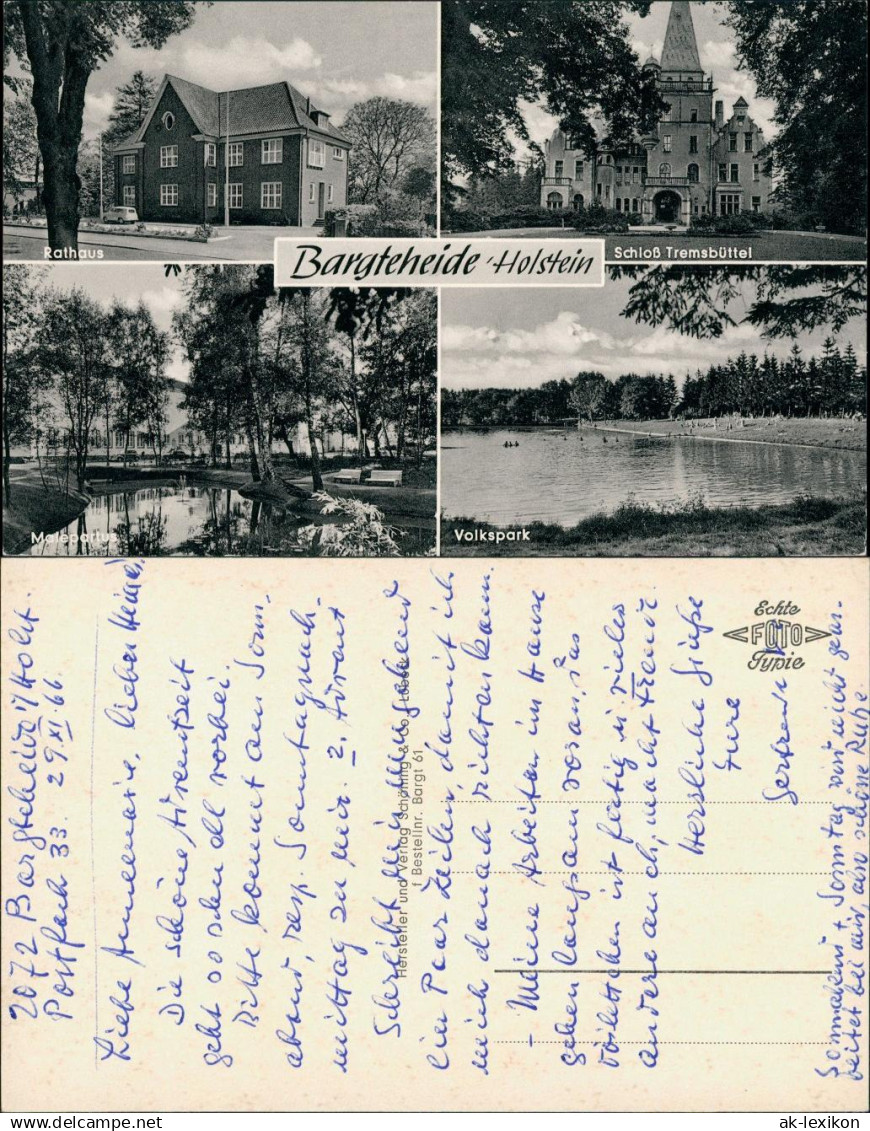 Rathaus
Schloß Tremsbüttel
Bargteheide-Holstein
Malepartus
Volkspark
Echte
FOTO
Typie
Hersteller und Verlag Schöning & Co., Lübeck
Bestellnr. Bargt 61
2072 Bargteheide i/Holst.
Postfach 33. 29.XI 66.
Liebe Annemarie, lieber Heiner,
Die schöne Adventzeit
geht so schnell vorbei.
Bitte kommt am Sonn-
abend, resp. Sonntagnach-
mittag zu mir. 2. Advent
Schreibt mir umgehend
ein Paar Zeilen, damit ich
mich danach richten kann.
- Meine Arbeiten im Hause
gehen langsam voran, das
Toilettchen ist fertig u. vieles
andere auch, macht Freude.
Herzliche Grüße
Eure
Gertrud
Sonnabend + Sonntag wird nicht gear-
beitet bei mir, also schöne Ruhe
ak-lexikon